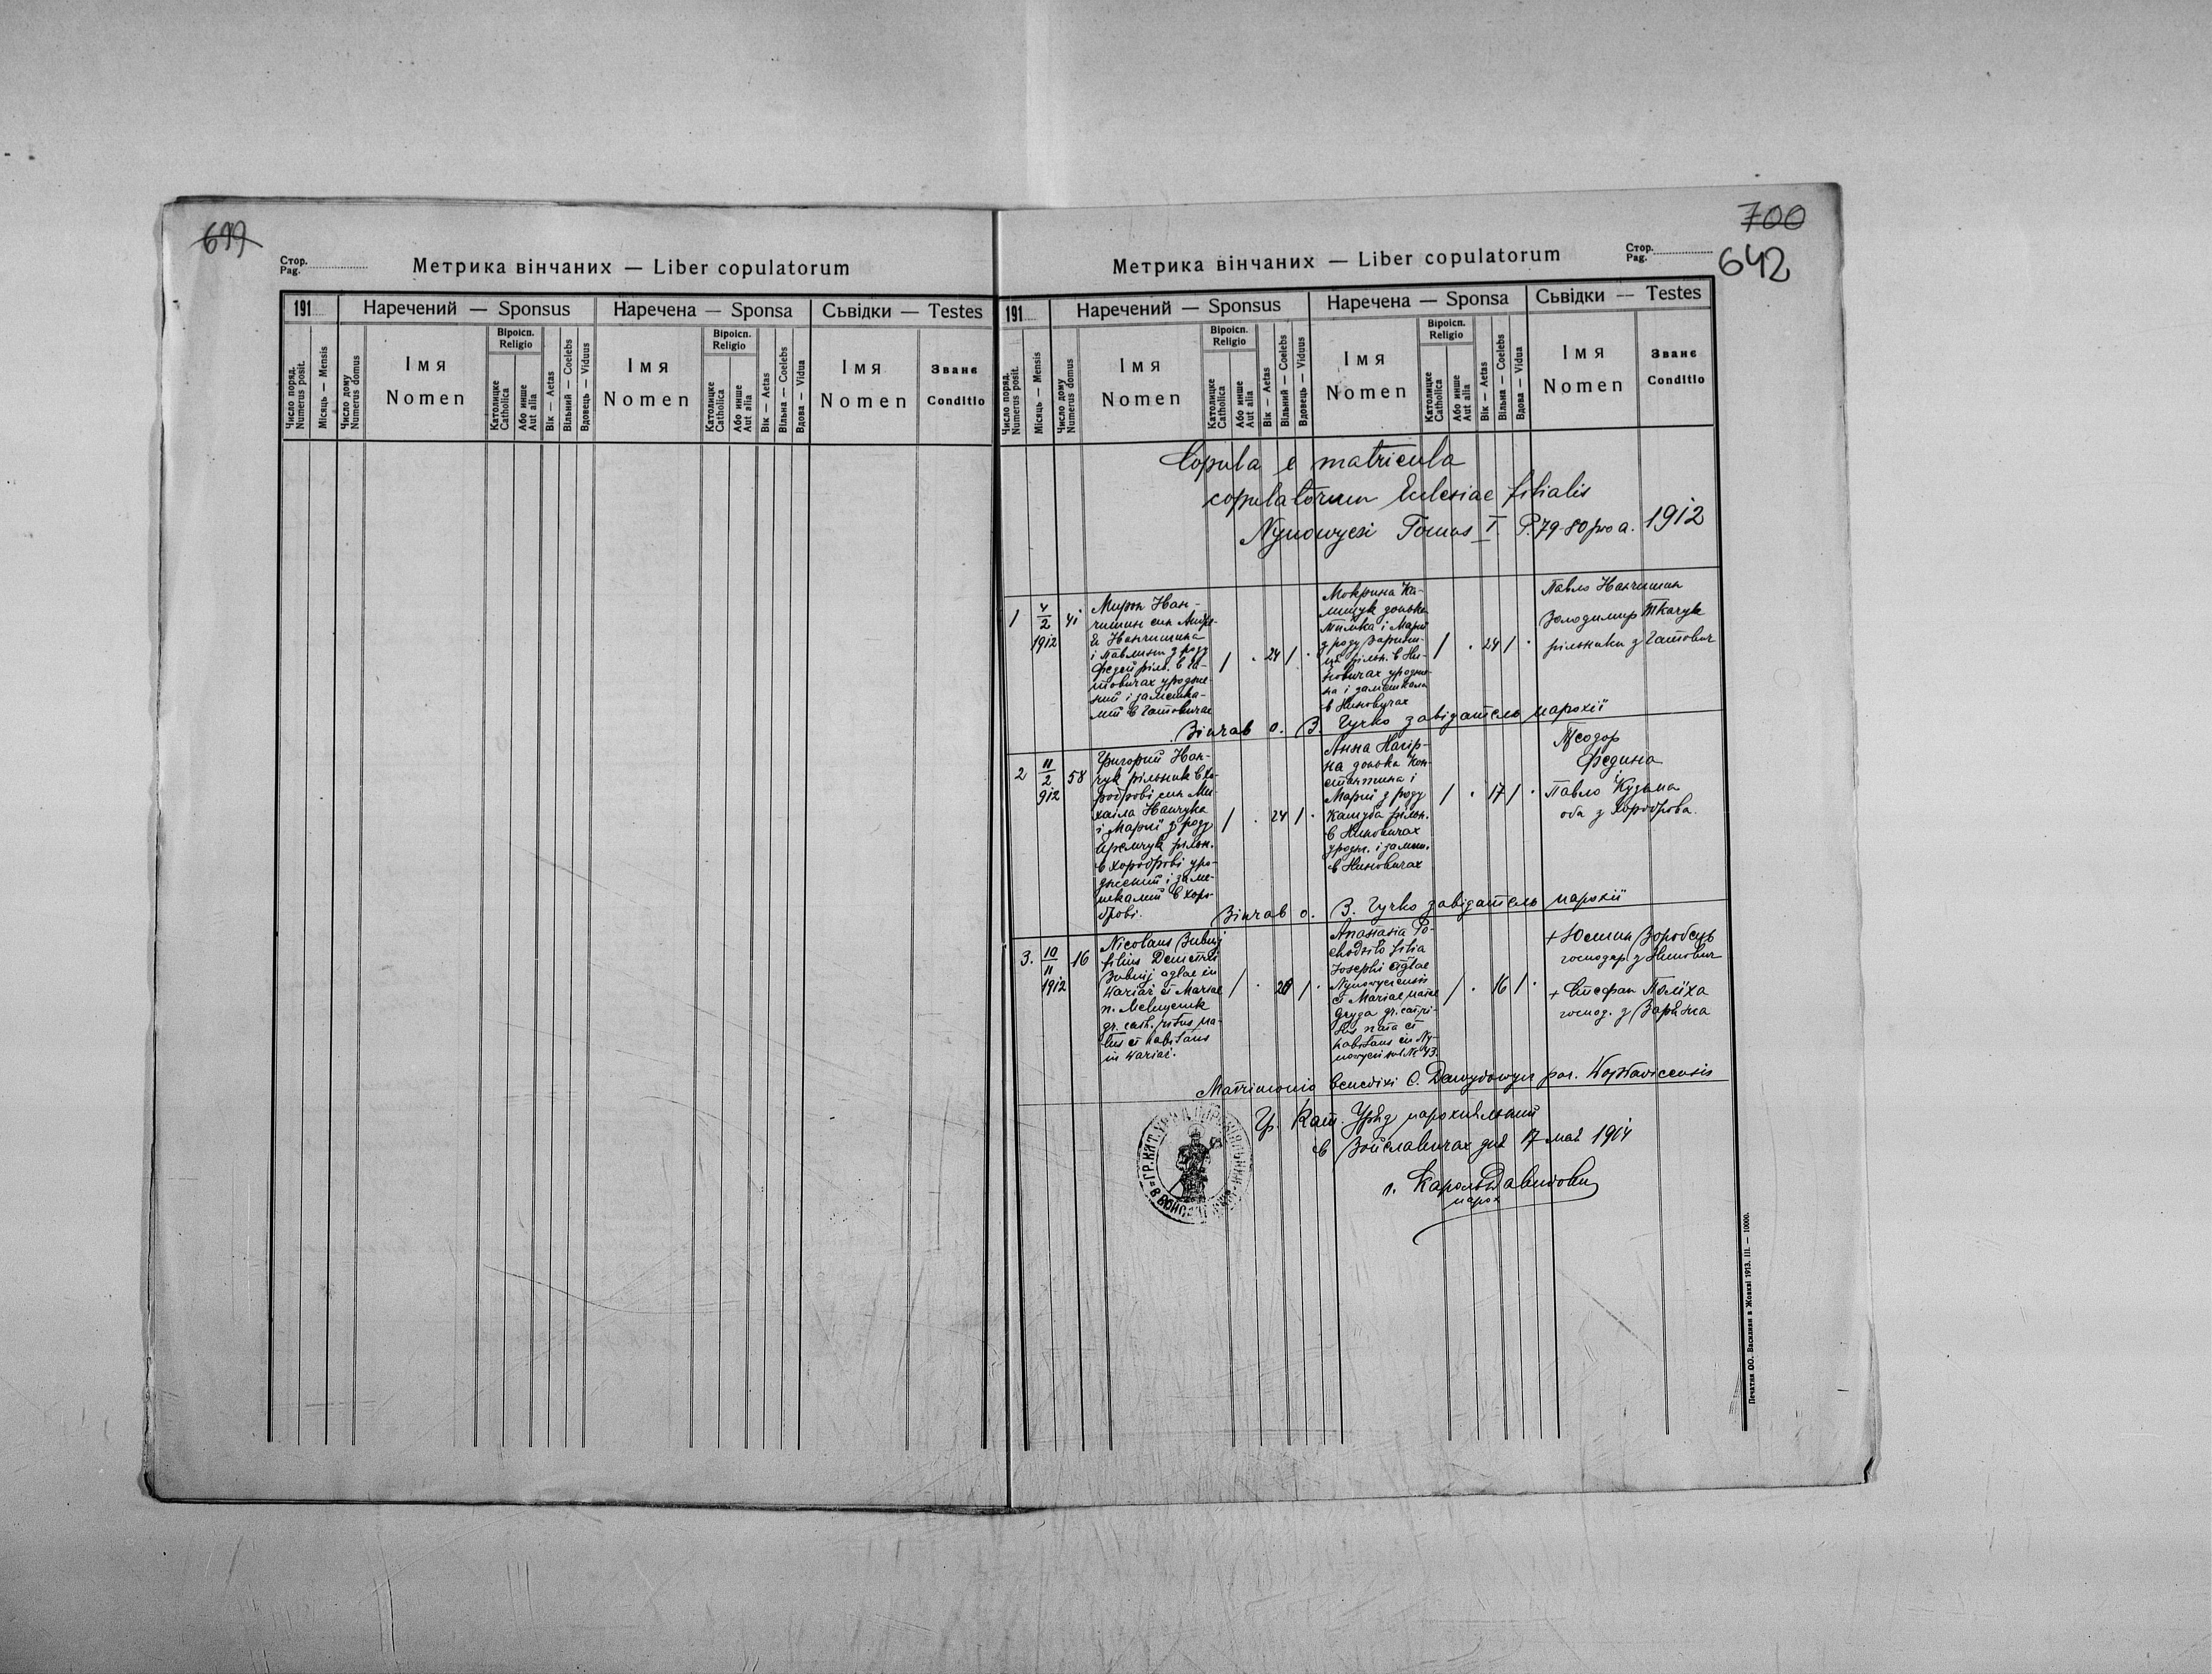 699
Стор.
Pag.
Метрика вінчаних — Liber copulatorum
191
Наречений — Sponsus
Наречена — Sponsa
Сьвідки — Testes
Число поряд.
Numerus posit.
Місяць — Mensis
Число дому
Numerus domus
Імя
Nomen
Віроісп.
Religio
Католицке
Catholica
Або инше
Aut alia
Вік — Aetas
Вільний — Coelebs
Вдовець — Viduus
Імя
Nomen
Віроісп.
Religio
Католицке
Catholica
Або инше
Aut alia
Вік — Aetas
Вільна — Coelebs
Вдова — Vidua
Імя
Nomen
Званє
Conditio
700
642
Стор.
Pag.
Метрика вінчаних — Liber copulatorum
191
Наречений — Sponsus
Наречена — Sponsa
Сьвідки — Testes
Число поряд.
Numerus posit.
Місяць — Mensis
Число дому
Numerus domus
Імя
Nomen
Віроісп.
Religio
Католицке
Catholica
Або инше
Aut alia
Вік — Aetas
Вільний — Coelebs
Вдовець — Viduus
Імя
Nomen
Віроісп.
Religio
Католицке
Catholica
Або инше
Aut alia
Вік — Aetas
Вільна — Coelebs
Вдова — Vidua
Імя
Nomen
Званє
Conditio
Copula e matricula
copulatorum Eclesiae filialis
Nynowyczi Tomus I. P. 79-80 pro a. 1912
1
4
2
1912
41
Мирон Нан-
чишин син Андре-
я Нанчишина
і Павлини з роду
Федей ріль. в
уродже-
ний і замешка-
лий в
/ . 24 / .
Мокрина Ка-
лищук донька
Тимка і Марії
з роду
рільн. в Ни-
новичах уродже-
на і замешкала
в Ниновичах
/ . 24 / .
Павло Нанчишин
Володимир Ткачук
рільники з
Вінчав о. В. Гучко завідатель парохії
2
11
2
912
58
Григорий Нан-
чук рільник в Хо-
роброві син Ми-
хаіла Нанчука
і Марії з роду
Яремчук рільн.
в Хороброві уро-
джений і заме-
шкалий в Хоро-
брові.
/ . 24 / .
Анна Нагір-
на донька Кон-
стантина і
Марії з роду
Кашуба рільн.
в Ниновичах
уродж. і замеш.
в Ниновичах
/ . 17 / .
Теодор
Федина
і
Павло Кузьма
оба з Хороброва.
Вінчав о. В. Гучко завідатель парохії
3.
10
11
1912
16
Nicolaus Bubnij
filius Demetrii
Bubnij aglae in
Wariaż et Mariae
n. Melnyczuk
gr. cath. ritus na-
tus et habitans
in Wariaż.
/ . 28 / .
Anastasia Po-
chodiło filia
Josephi aglae
Nynowycensis
et Mariae natae
Gryga gr. cat. ri-
tus nata et
habitans in Ny-
nowyczi sub № 43.
/ . 16 / .
+ Юлиян Воробець
господар з Нинович
+ Стефан Поліха
господ. з Варяжа
Matrimonio benedixi C. Dawydowycz par. Wojslavicensis
Гр. Кат. Уряд парохіяльний
в Войславичах дня 17 мая 1914
о. Кароль Давидович
парох
Печатня ОО. Василиян в Жовкві 1913. III. — 10000.